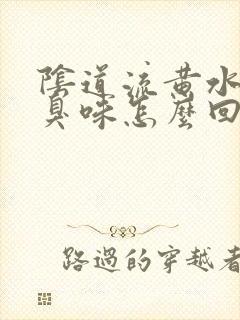 陰道流黃水
臭味怎麼回
路過的穿越者